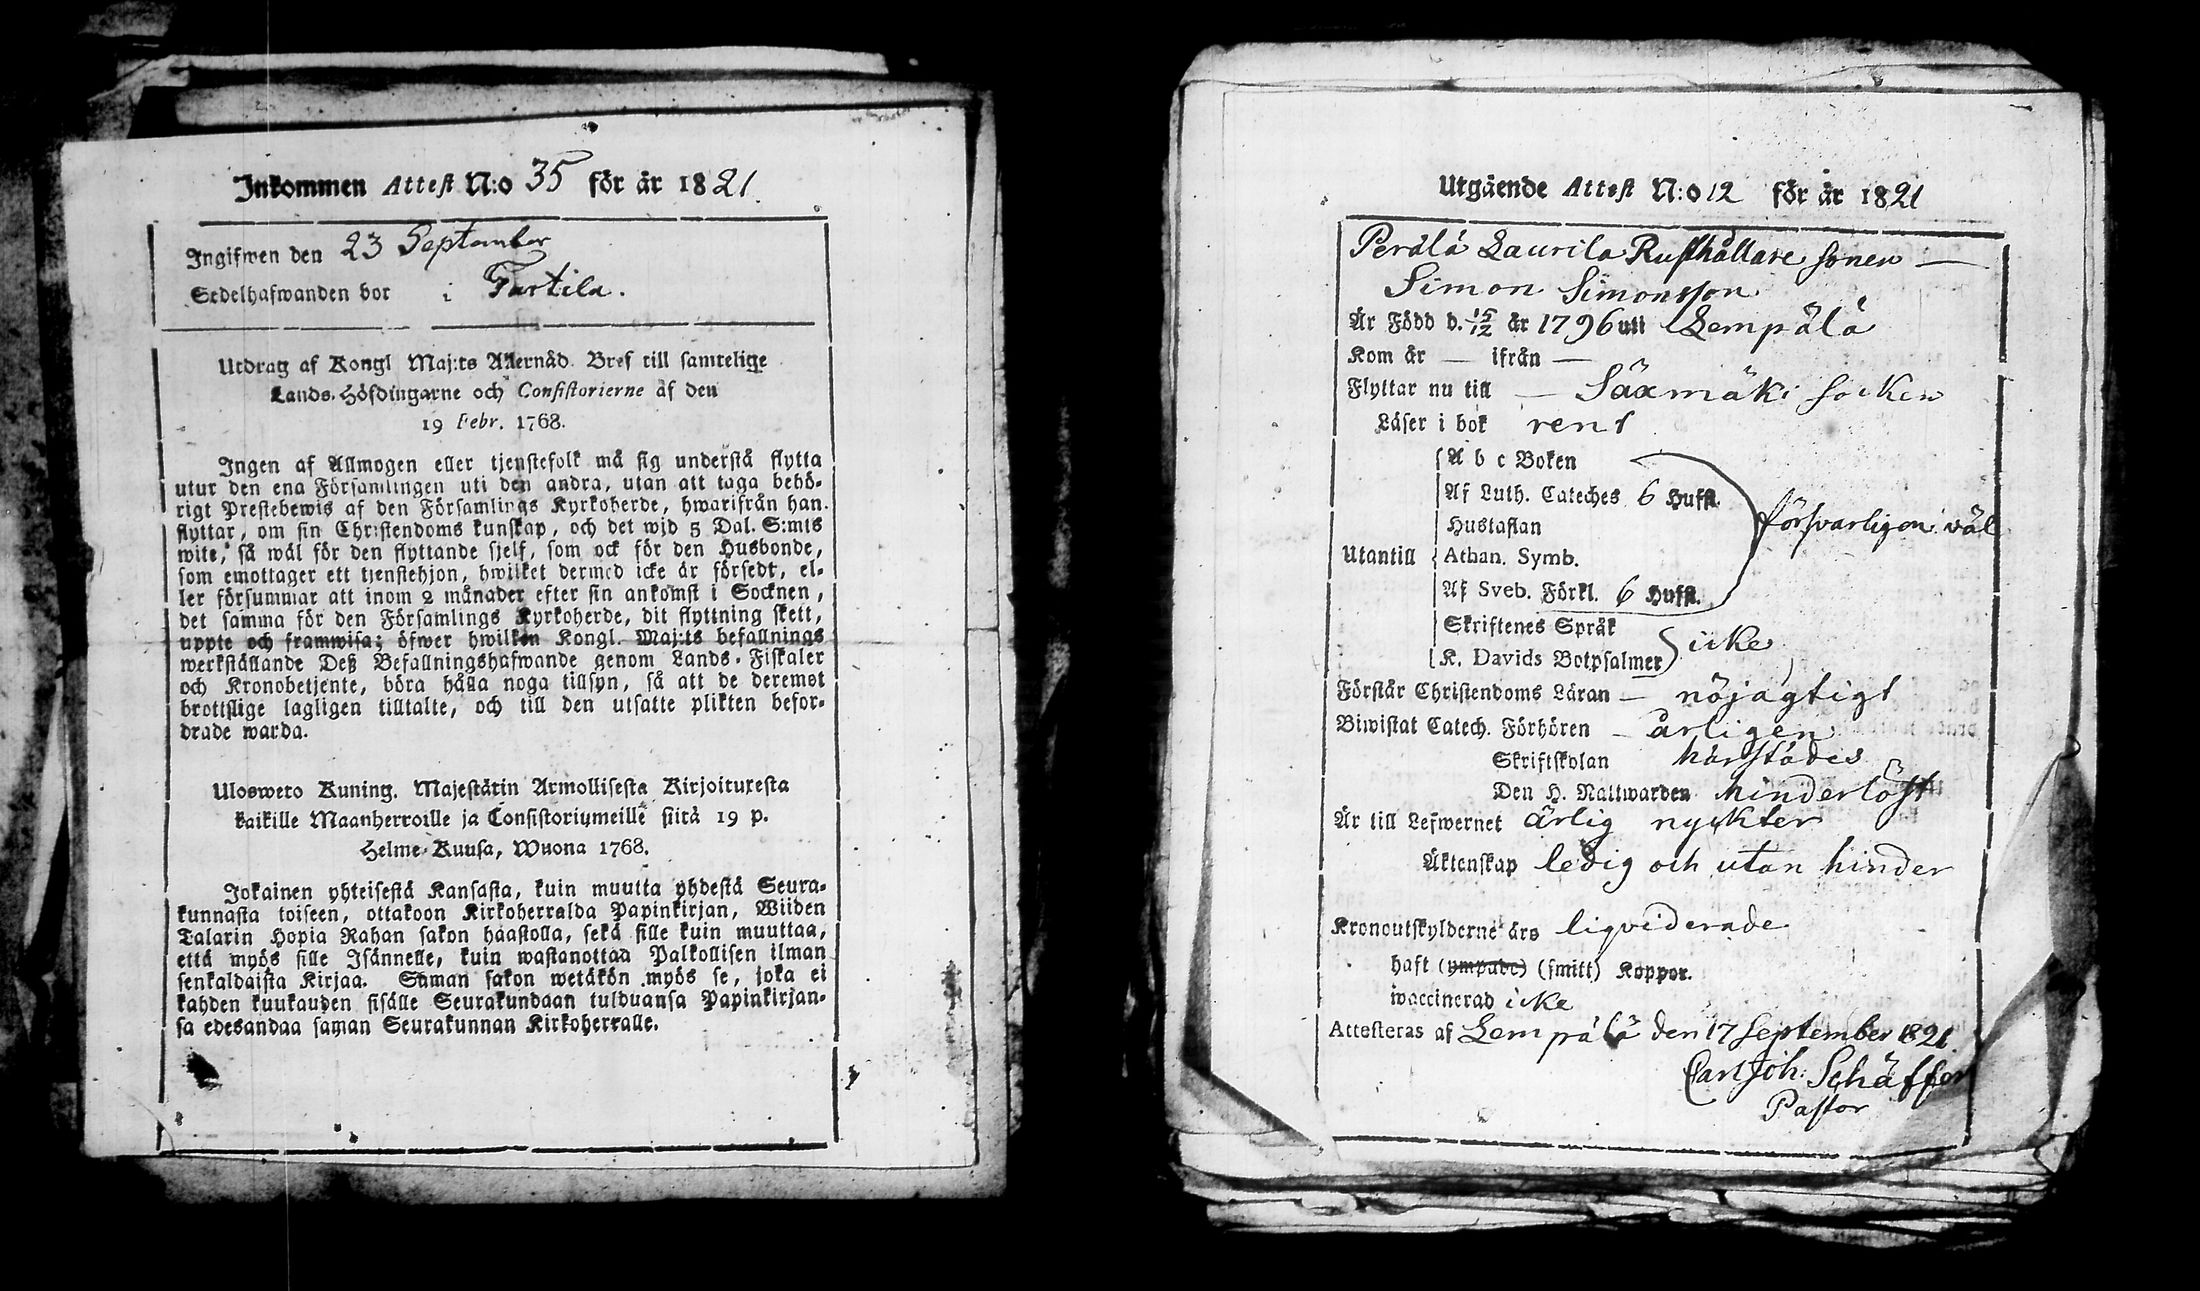 Inkommen Attest N:o 35 för år 1821.
Ingifwen den 23 September
Sedelhafwanden bor i Tartila.
Utdrag af Kongl Maj:ts Allernåd. Bref till samtelige
Lands-Höfdingarne och Consistorierne af den
19 Febr. 1768.
Ingen af Allmogen eller tjenstefolk må sig understå flytta
utur den ena Församlingen uti den andra, utan att taga behö-
rigt Prestebewis af den Församlings Kyrkoherde, hwarifrån han
flyttar, om sin Christendoms kunskap, och det wid 5 Dal. S:mts
wite, så wäl för den flyttande sjelf, som ock för den Husbonde,
som emottager ett tjenstehjon, hwilket dermed icke är försedt, el-
ler försummar att inom 2 månader efter sin ankomst i Socknen,
det samma för den Församlings Kyrkoherde, dit flyttning skett,
uppte och framwisa; öfwer hwilken Kongl. Maj:ts befallnings
werkställande Deß Befallningshafwande genom Lands-Fiskaler
och Kronobetjente, böra hålla noga tillsyn, så att de deremot
brottslige lagligen tilltalte, och till den utsatte plikten befor-
drade warda.
Ulosweto Kuning. Majestätin Armollisesta Kirjoituxesta
kaikille Maanherroille ja Consistoriumeille siitä 19 p.
Helme-Kuusa, Wuona 1768.
Jokainen yhteisestä Kansasta, kuin muutta yhdestä Seura-
kunnasta toiseen, ottakoon Kirkoherralda Papinkirjan, Wiiden
Talarin Hopia Rahan sakon haastolla, sekä sille kuin muuttaa,
että myös sille Isännelle, kuin wastanottaa Palkollisen ilman
senkaldaista Kirjaa. Saman sakon wetäkön myös se, joka ei
kahden kuukauden sisälle Seurakundaan tulduansa Papinkirjan-
sa edesandaa saman Seurakunnan Kirkoherralle.
Utgående Attest N:o 12 för år 1821
Perälä Laurila Rusthållare sonen —
Simon Simonsson
Är Född d. 15/12 år 1796 uti Lempälä
Kom år — ifrån —
Flyttar nu till — Sääxmäki socken
Läser i bok rent
A b c Boken
Af Luth. Cateches 6 Hufst.
Hustaflan
försvarligen väl
Utantill Athan. Symb.
Af Sveb. Förkl. 6 Hufst.
Skriftenes Språk
icke
K. Davids Botpsalmer
Förstår Christendoms Läran — nöjagtigt
Biwistat Catech. Förhören — årligen
Skriftskolan härstädes
Den H. Nattwarden hinderlöst
Är till Lefwernet ärlig nyckter
Äktenskap ledig och utan hinder
Kronoutskylderne års liqviderade
haft (ympade) (smitt) Koppor.
waccinerad icke
Attesteras af Lempälä den 17 September 1821.
Carl Joh: Schäffer
Pastor